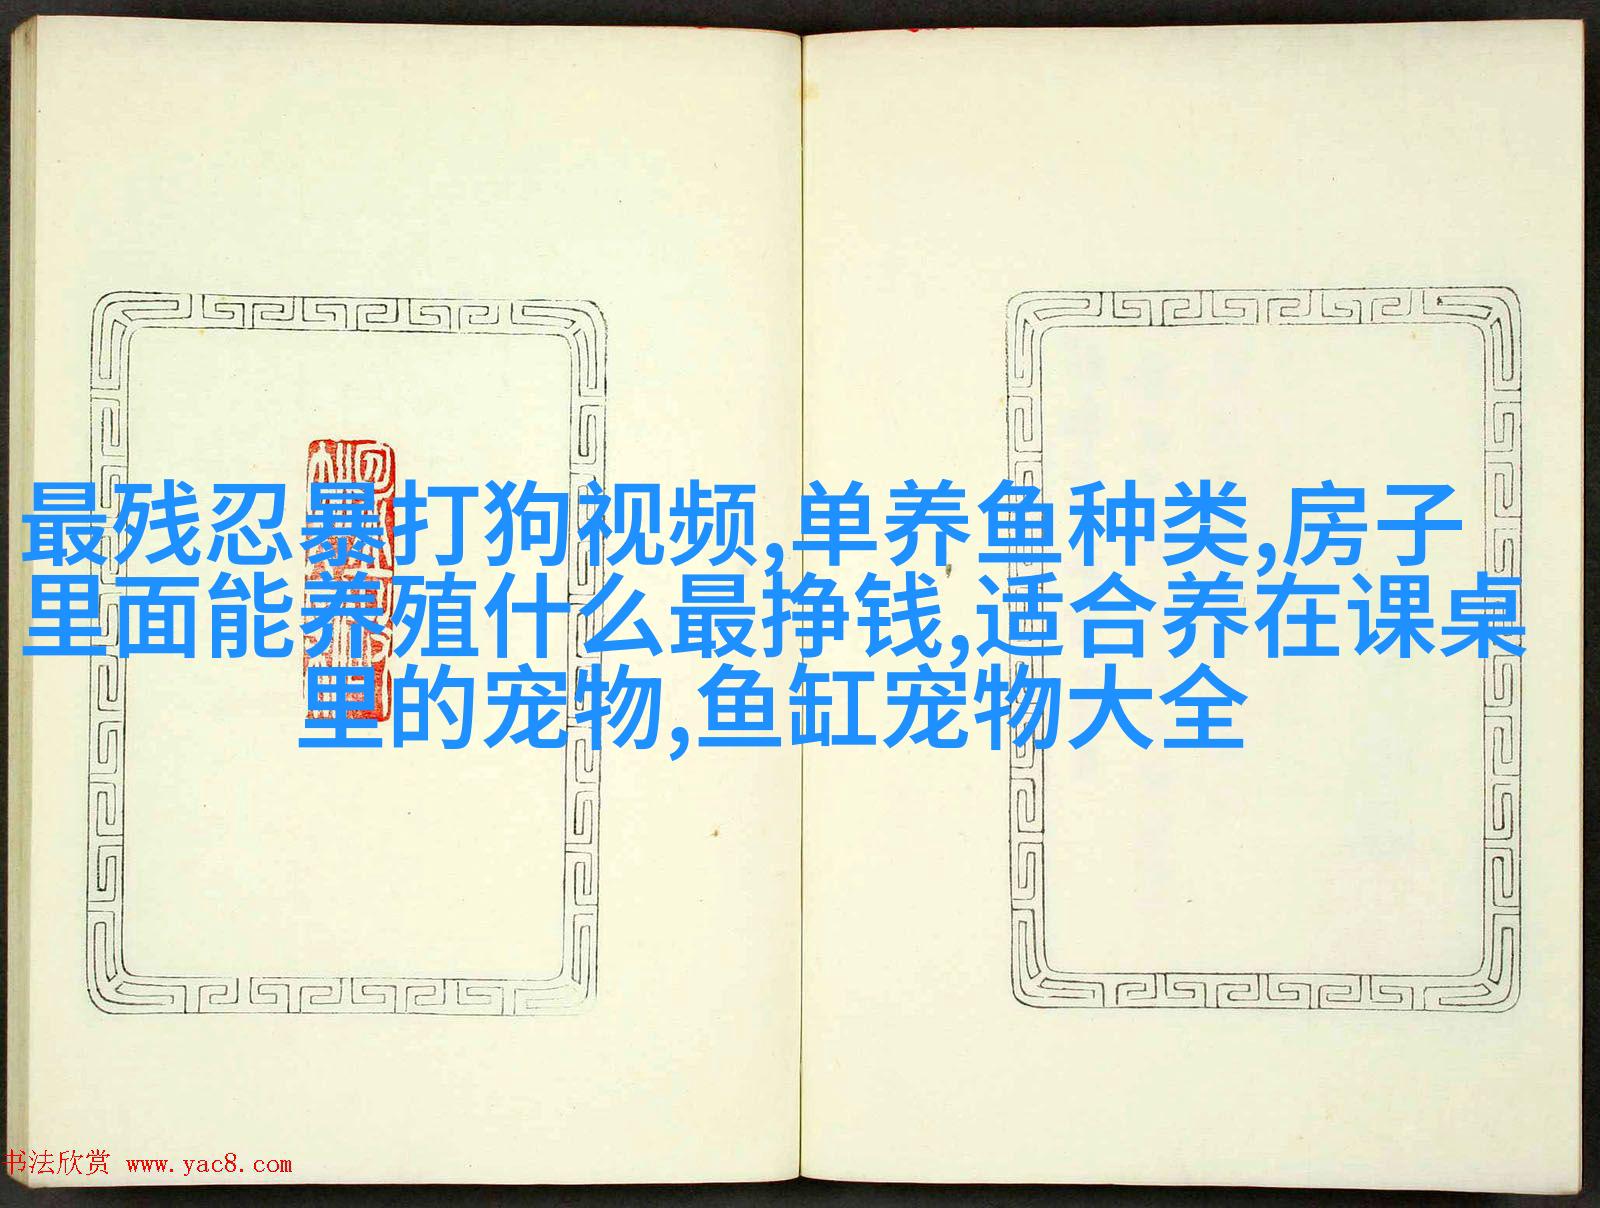 最残忍暴打狗视频,单养鱼种类,房子
里面能养殖什么最挣钱,适合养在课桌
里的宠物,鱼缸宠物大全
书法欣赏 www.yac8.com